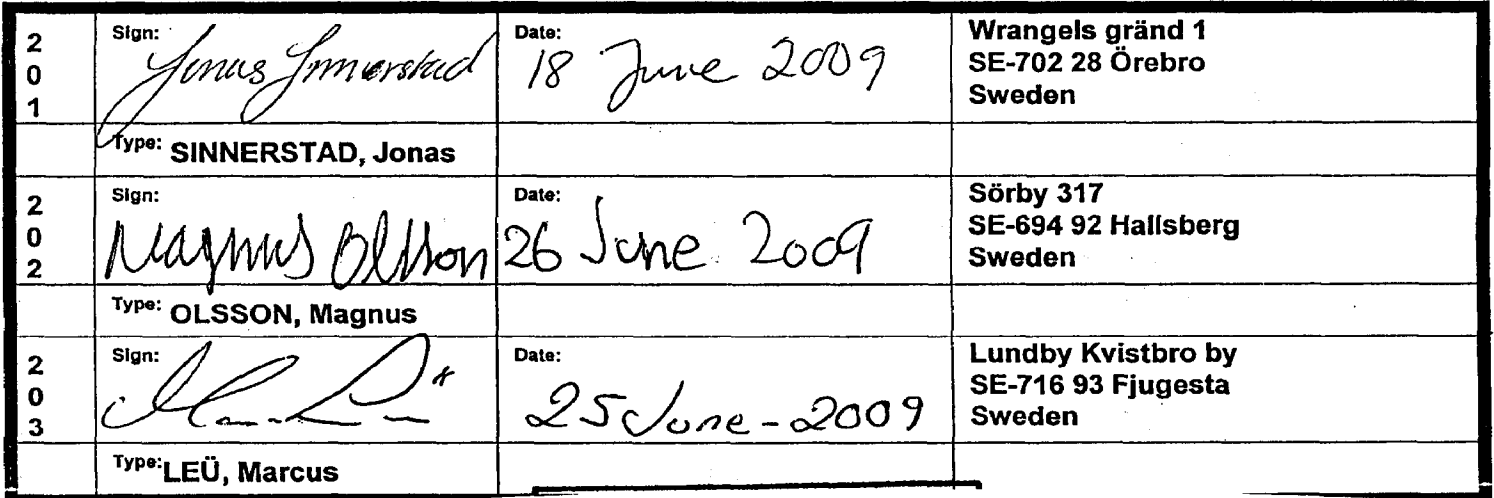 201
Sign: Jonas Sinnerstad
Date: 18 June 2009
Wrangels gränd 1
SE-702 28 Örebro
Sweden
Type: SINNERSTAD, Jonas
202
Sign: Magnus Olsson
Date: 26 June 2009
Sörby 317
SE-694 92 Hallsberg
Sweden
Type: OLSSON, Magnus
203
Sign:
Date: 25 June-2009
Lundby Kvistbro by
SE-716 93 Fjugesta
Sweden
Type: LEÜ, Marcus